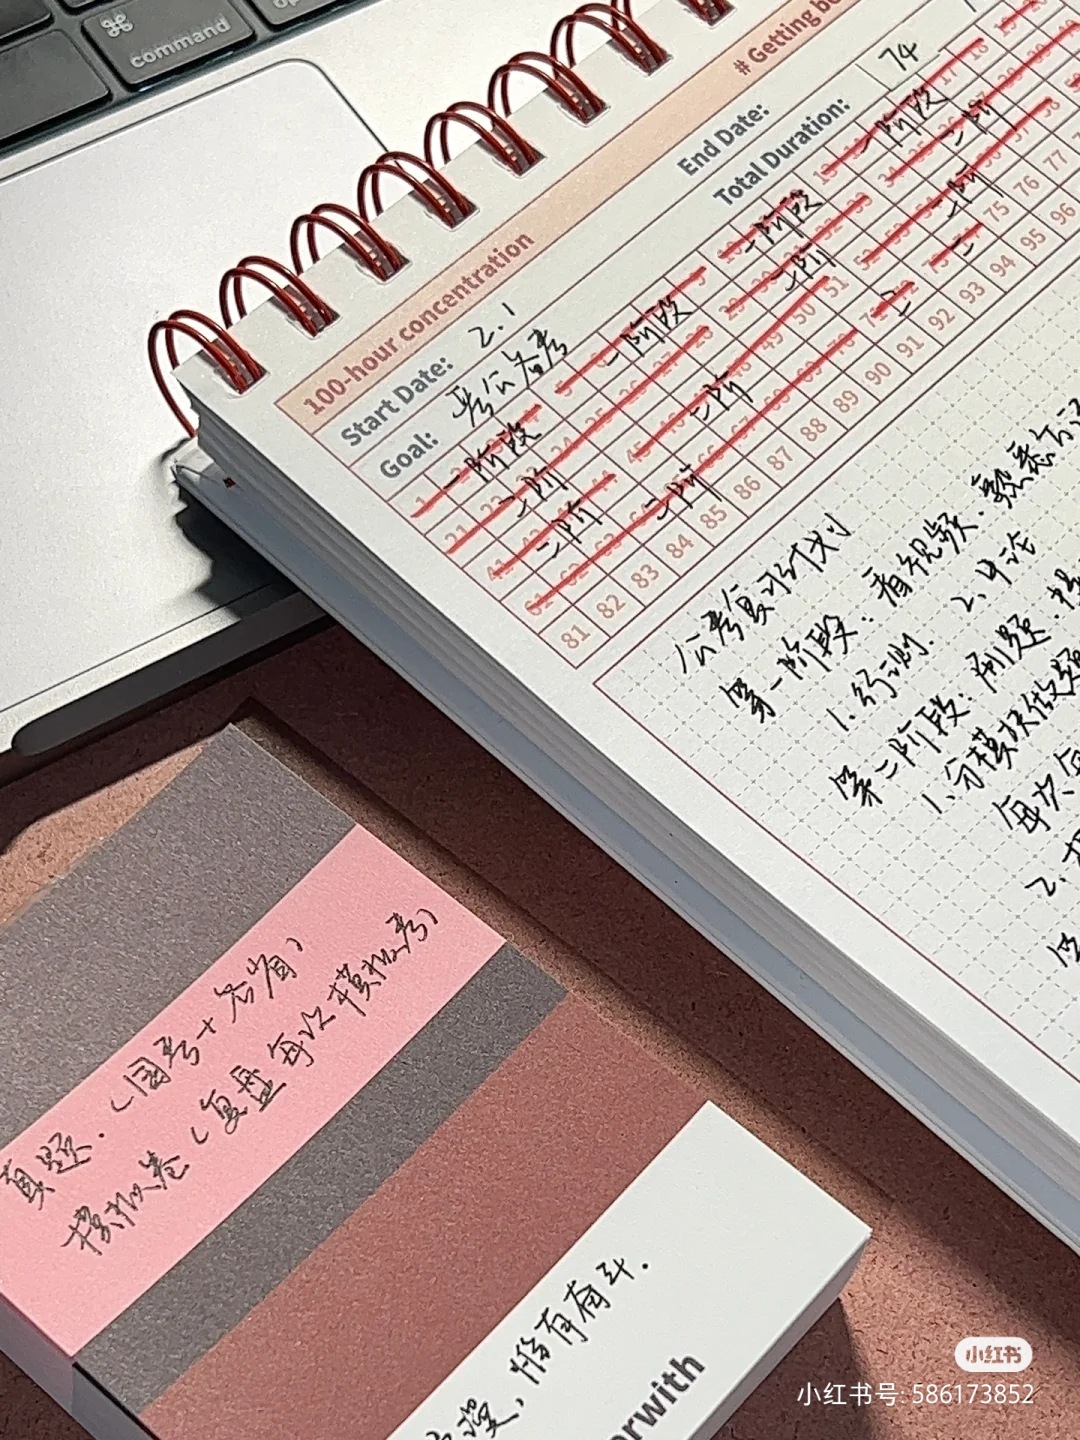 command
# Getting be
100-hour concentration
Start Date: 2.1
End Date:
Goal: 考公备考
Total Duration: 74
一阶段 一阶段 一阶段 一阶段
二阶 二阶 二阶
二阶 二阶 二阶
二阶 二 二
75 76 77
81 82 83 84 85 86 87 88 89 90 91 92 93 94 95 96
公考复习计划
第一阶段：看视频.熟悉
1.行测. 2.申论
第二阶段：刷题.
1.分模块做题
每次
2.
真题.(国考+各省)
模拟卷(复盘每次模拟考)
漫，惟有奋斗.
rwith
小红书
小红书号: 586173852